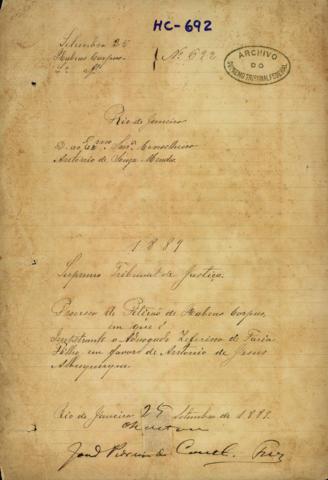 HC-692
Setembro 25
Habeas Corpus.
Nº 692
ARCHIVO
DO
SUPREMO TRIBUNAL FEDERAL
Rio de Janeiro
D. ao Exmo Senr. Conselheiro
Antonio de Souza Mendes.
1889
Supremo Tribunal de Justiça.
Processo de Petição de Habeas Corpus,
em que é
Impetrante o Advogado Zeferino de Faria
Filho, em favor de Antonio de Jesus
Albuquerque.
Rio de Janeiro 25 Setembro de 1889.
José